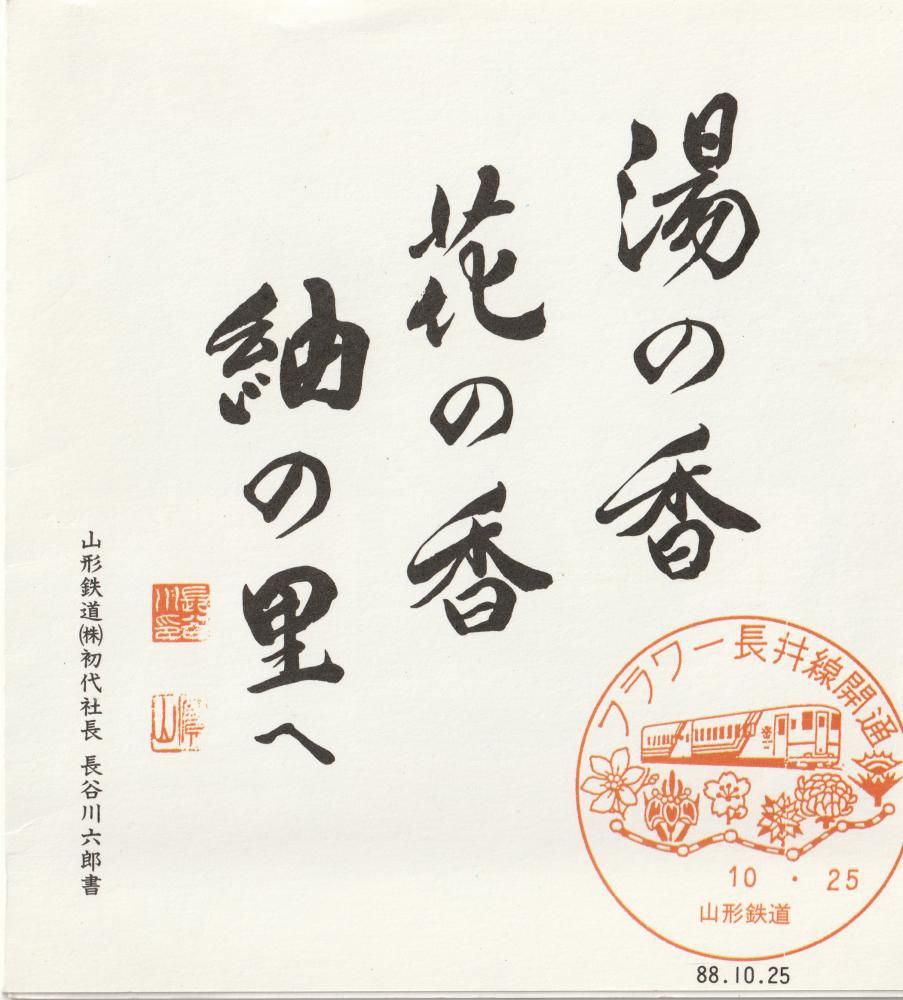 湯の香
花の香
紬の里へ
山形鉄道㈱初代社長 長谷川六郎書
フラワー長井線開通
10・25
山形鉄道
88.10.25